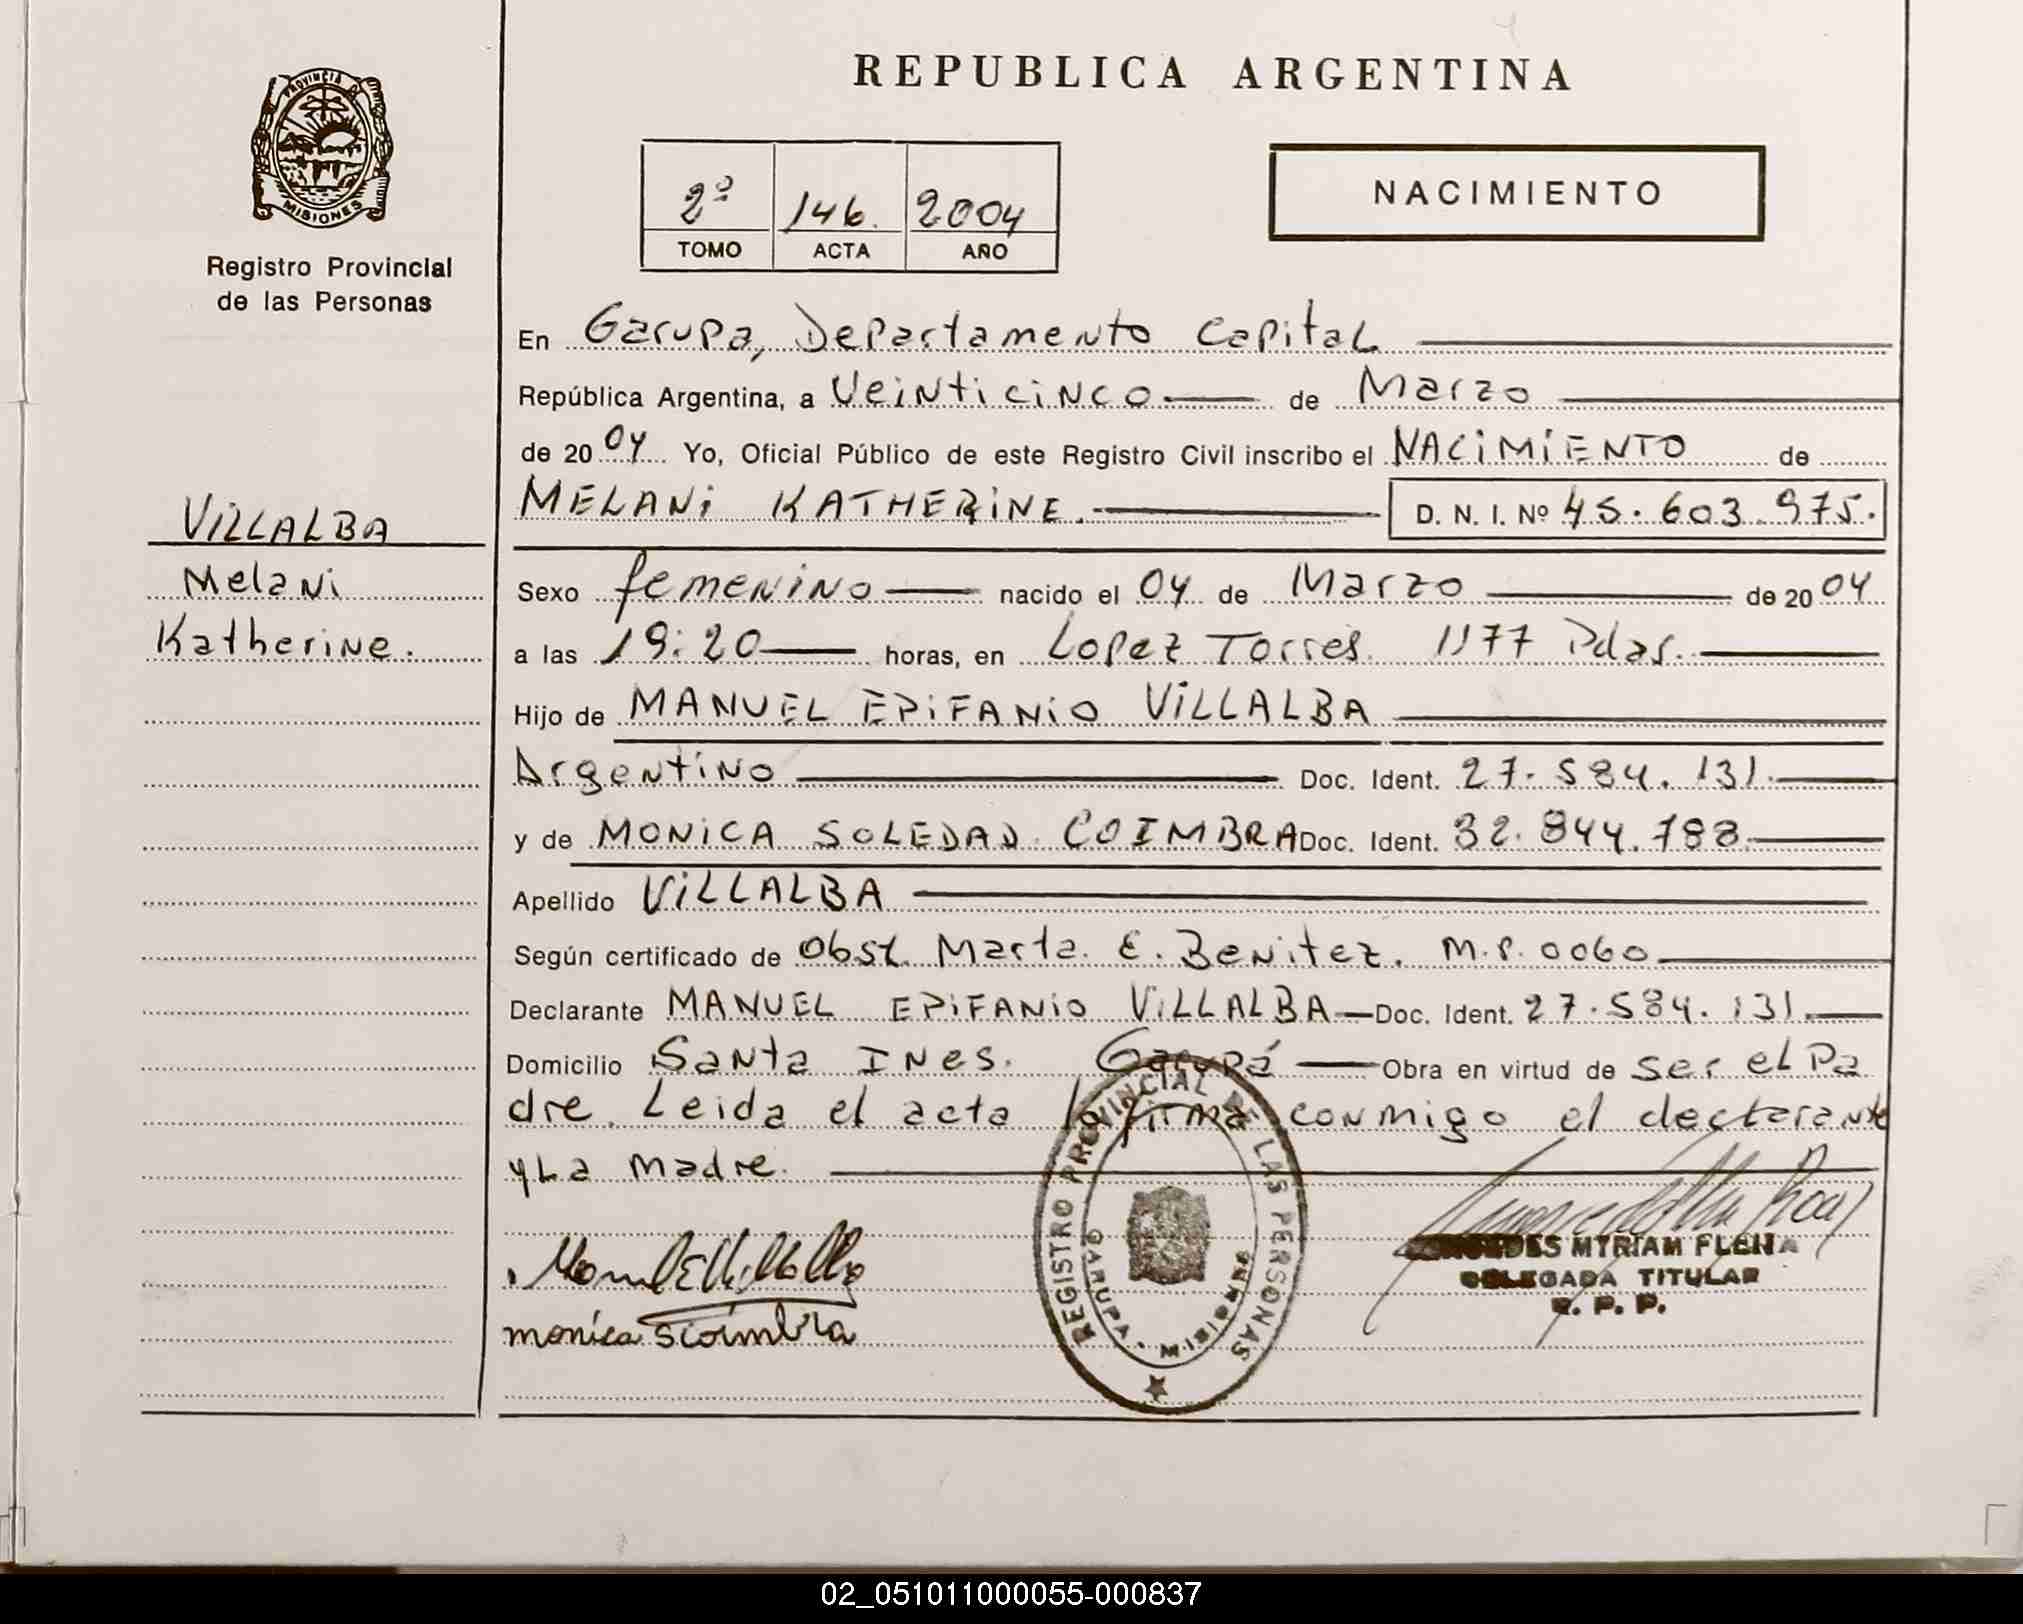 REPUBLICA ARGENTINA
PROVINCIA DE MISIONES
Registro Provincial
de las Personas
2º 146. 2004
TOMO ACTA AÑO
NACIMIENTO
En Garupa, Departamento Capital
República Argentina, a Veinticinco de Marzo
de 2004 Yo, Oficial Público de este Registro Civil inscribo el NACIMIENTO de
MELANI KATHERINE. D. N. I. Nº 45.603.975.
VILLALBA
Melani
Katherine.
Sexo femenino nacido el 04 de Marzo de 2004
a las 19:20 horas, en Lopez Torres 1177 Pdas.
Hijo de MANUEL EPIFANIO VILLALBA
Argentino Doc. Ident. 27.584.131.
y de MONICA SOLEDAD COIMBRA Doc. Ident. 32.844.788.
Apellido VILLALBA
Según certificado de Obst. Marta. E. Benitez. M.P. 0060
Declarante MANUEL EPIFANIO VILLALBA Doc. Ident. 27.584.131.
Domicilio Santa Ines. Garupá Obra en virtud de ser el Pa
dre. Leida el acta la firma conmigo el declarante
y La madre.
REGISTRO PROVINCIAL DE LAS PERSONAS
GARUPA - MISIONES
Manuel E Villalba
monica S Coimbra
MYRIAM
DELEGADA TITULAR
R. P. P.
02_051011000055-000837